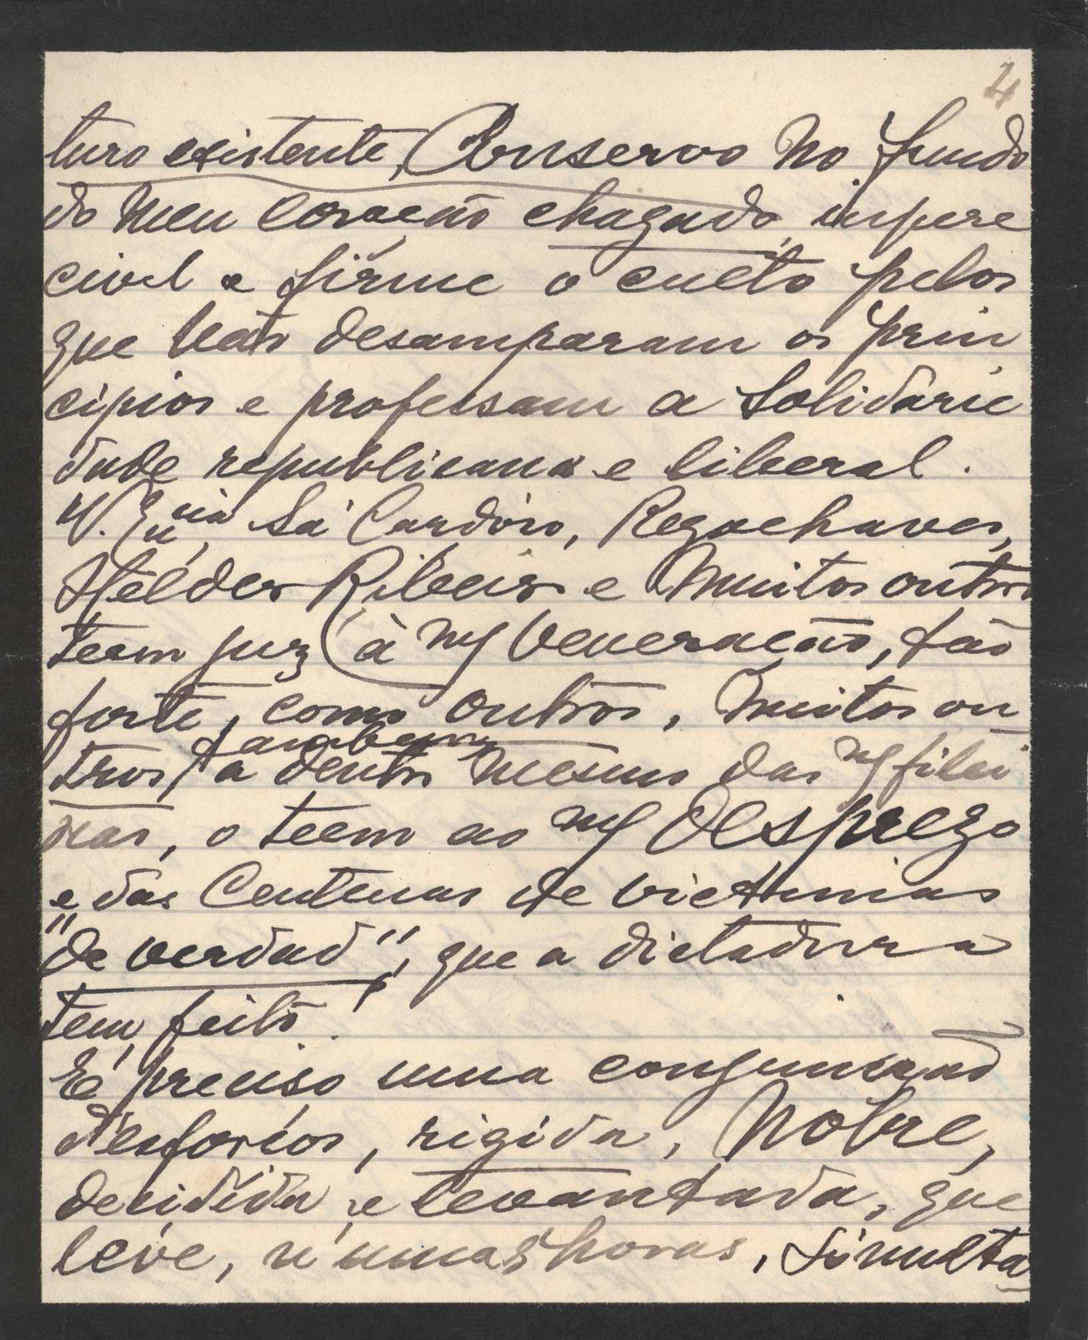 4
turo existente, Conservo no fundo
do meu coração chagado, impere
civel e firme o culto pelos
que não desamparam os prin
cipios e professam a solidarie
dade republicana e liberal.
V. Ex.cia, Sá Cardoso, Regochaves,
Hélder Ribeiro e muitos outros
teem juz à m/ veneração, tão
forte, como outros, muitos ou
tros, tambem
a dentro mesmo das m/ filei
ras, o teem ao m/ desprezo
e das centenas de victimas
"de verdad", que a dictadura
tem feito.
É preciso uma conjuncção
d'esforços, rigida, nobre,
decidida e levantada, que
leve, n'umas horas, simulta